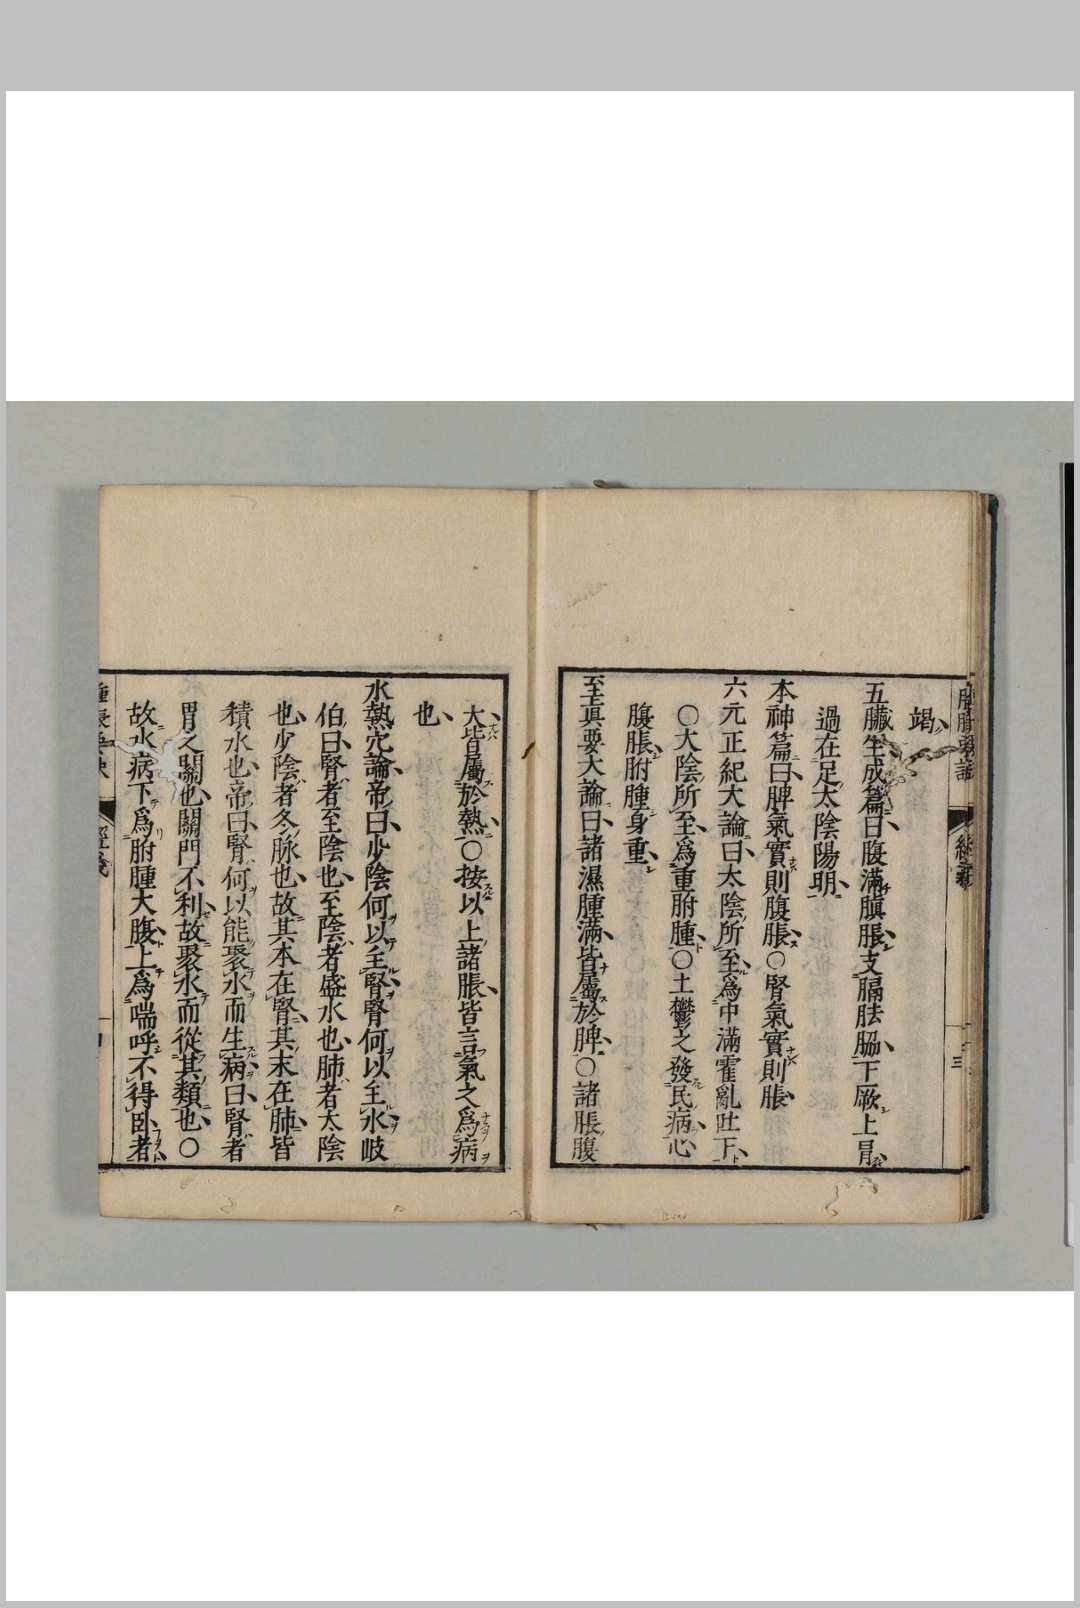 竭
五臟生成篇曰腹滿䐜脹支膈胠脇下厥上冒
過在足太陰陽明
本神篇曰脾氣實則腹脹○腎氣實則脹
六元正紀大論曰太陰所至爲中滿霍亂吐下
○大陰所至爲重胕腫○土鬱之發民病心
腹脹胕腫身重
至眞要大論曰諸濕腫滿皆屬於脾○諸脹腹
三
大皆屬於熱○按以上諸脹皆言氣之爲病
也
水熱穴論帝曰少陰何以主腎腎何以主水岐
伯曰腎者至陰也至陰者盛水也肺者太陰
也少陰者冬脉也故其本在腎其末在肺皆
積水也帝曰腎何以能聚水而生病曰腎者
胃之關也關門不利故聚水而從其類也○
故水病下爲胕腫大腹上爲喘呼不得卧者